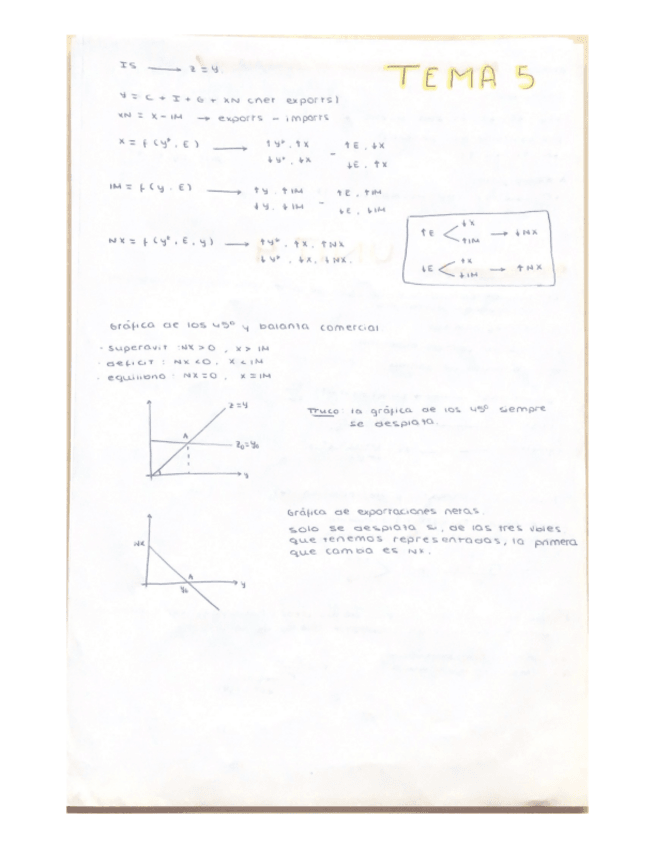 TEMA 5
IS → Z = Y
Y = C + I + G + XN (net exports)
XN = X - IM → exports - imports
X = f (y*, E) → ↑y*, ↑X - ↑E, ↓X
↓y*, ↓X ↓E, ↑X
IM = f (y, E) → ↑y, ↑IM - ↑E, ↑IM
↓y, ↓IM ↓E, ↓IM
NX = f (y*, E, y) → ↑y*, ↑X, ↑NX
↓y*, ↓X, ↓NX.
↑E < ↓X ↑IM → ↓NX
↓E < ↑X ↓IM → ↑NX
Gráfica de los 45º y balanza comercial
· superávit : NX > 0 , X > IM
· déficit : NX < 0 , X < IM
· equilibrio : NX = 0 , X = IM
Z = Y
A
Z₀ = Y₀
Y
Truco la gráfica de los 45º siempre
se desplaza.
Gráfica de exportaciones netas.
Solo se desplaza si, de las tres vbles
que tenemos representadas, la primera
que cambia es NX.
NX
A
y₀
y